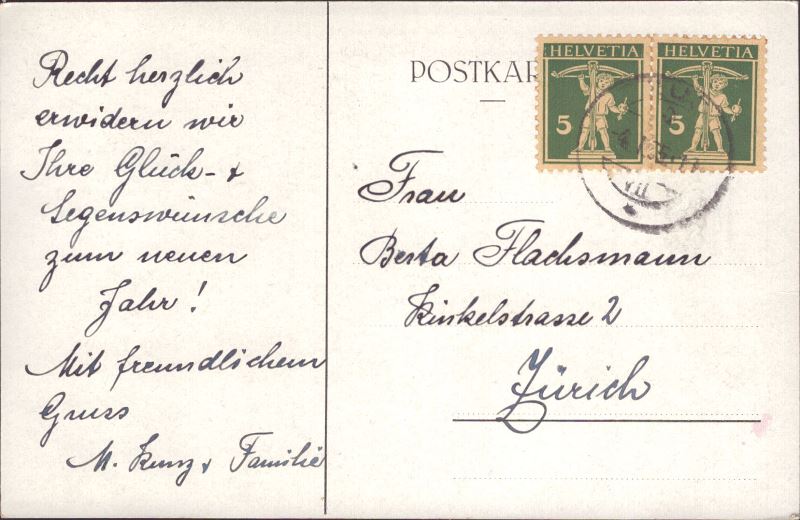 Recht herzlich
erwidern wir
Ihre Glück- &
Segenswünsche
zum neuen
Jahr!
Mit freundlichem
Gruss
M. Kunz & Familie
POSTKAR
HELVETIA HELVETIA
5 5
Frau
Berta Flachsmann
Kinkelstrasse 2
Zürich